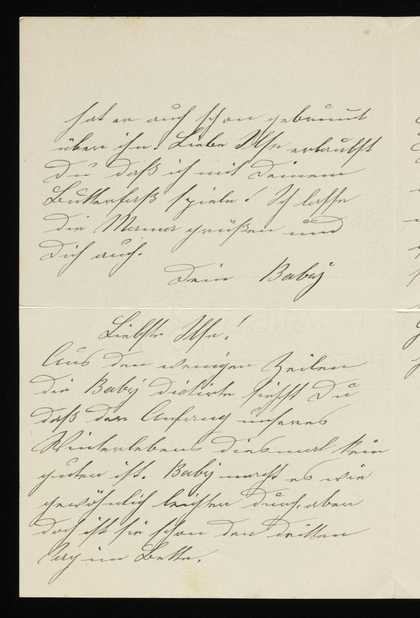 hat er auch schon gebrummt
über ihn. Liebe Ilse erlaubst
Du daß ich mit Deinem
Butterfaß spiele? Ich lasse
die Mama grüßen und
Dich auch.
Dein Baby
Liebste Ilse!
Aus den wenigen Zeilen
die Baby dictirte siehst Du
daß der Anfang unseres
Winterlebens diesmal kein
guter ist. Baby macht es wie
gewöhnlich leichter durch, aber
doch ist sie schon den dritten
Tag im Bette.